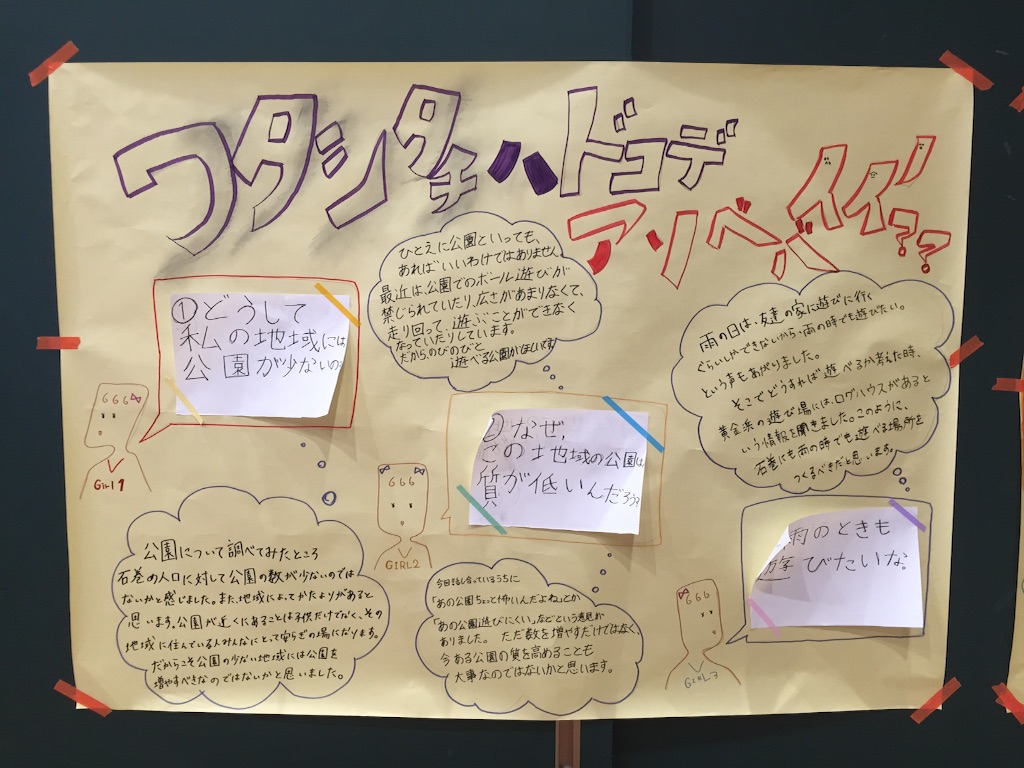 ワタシタチハドコデ
アソベバイイ!??
①どうして
私の地域には
公園が少ないの?
666
GIRL1
公園について調べてみたところ
石巻の人口に対して公園の数が少ないのでは
ないかと感じました。また、地域によってかたよりがあると
思います。公園が近くにあることは子供だけでなく、その
地域に住んでいる人みんなにとって安らぎの場になります。
だからこそ公園の少ない地域には公園を
増やすべきなのではないかと思いました。
ひとえに公園といっても、
あればいいわけではありません。
最近は、公園でのボール遊びが
禁じられていたり、広さがあまりなくて、
走り回って遊ぶことができなく
なっていたりしています。
だからのびのびと
遊べる公園がほしいです
②なぜ,
この地域の公園は
質が低いんだろう?
666
GIRL2
今日話し合っているうちに
「あの公園ちょっと怖いんだよね」とか
「あの公園遊びにくい」などという意見が
ありました。ただ数を増やすだけではなく、
今ある公園の質を高めることも
大事なのではないかと思います。
雨の日は、友達の家に遊びに行く
ぐらいしかできないから、雨の時でも遊びたい。
という声もあがりました。
そこでどうすれば遊べるか考えた時、
黄金浜の遊び場には、ログハウスがあると
いう情報を聞きました。このように、
石巻にも雨の時でも遊べる場所を
つくるべきだと思います。
雨のときも
遊びたいな。
666
GIRL3